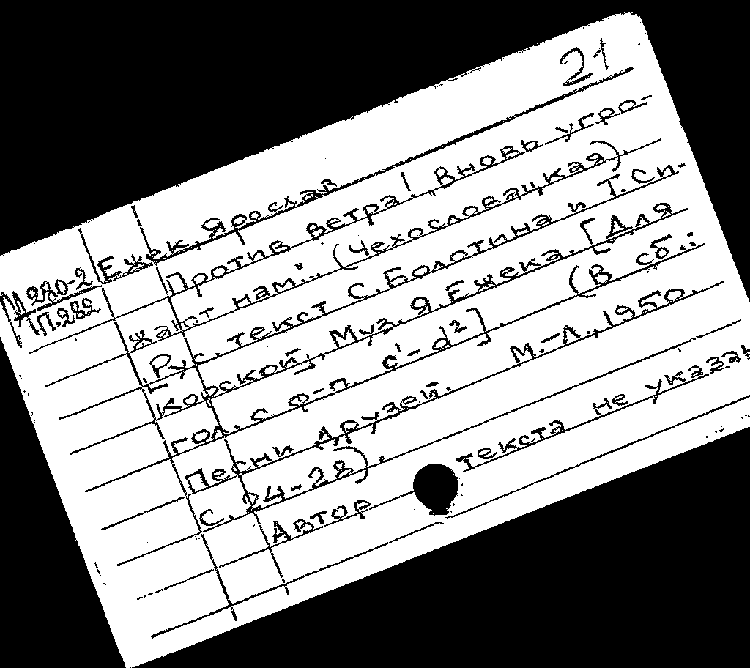 21
Ежек, Ярослав
М 280-2
П.282
Против ветра! „Вновь угро-
жают нам"... (Чехословацкая).
[Рус. текст С. Болотина и Т. Си-
корской]. Муз. Я. Ежека. [Для
гол. с ф-п. c¹-d²]. (В сб.:
Песни друзей. М.-Л., 1950.
С. 24-28).
Автор текста не указан